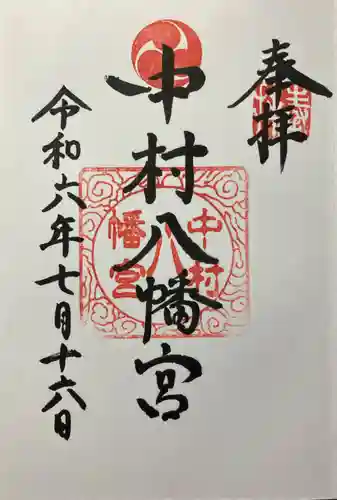 奉拝
中村八幡宮
中村
八
幡宮
令和六年七月十六日